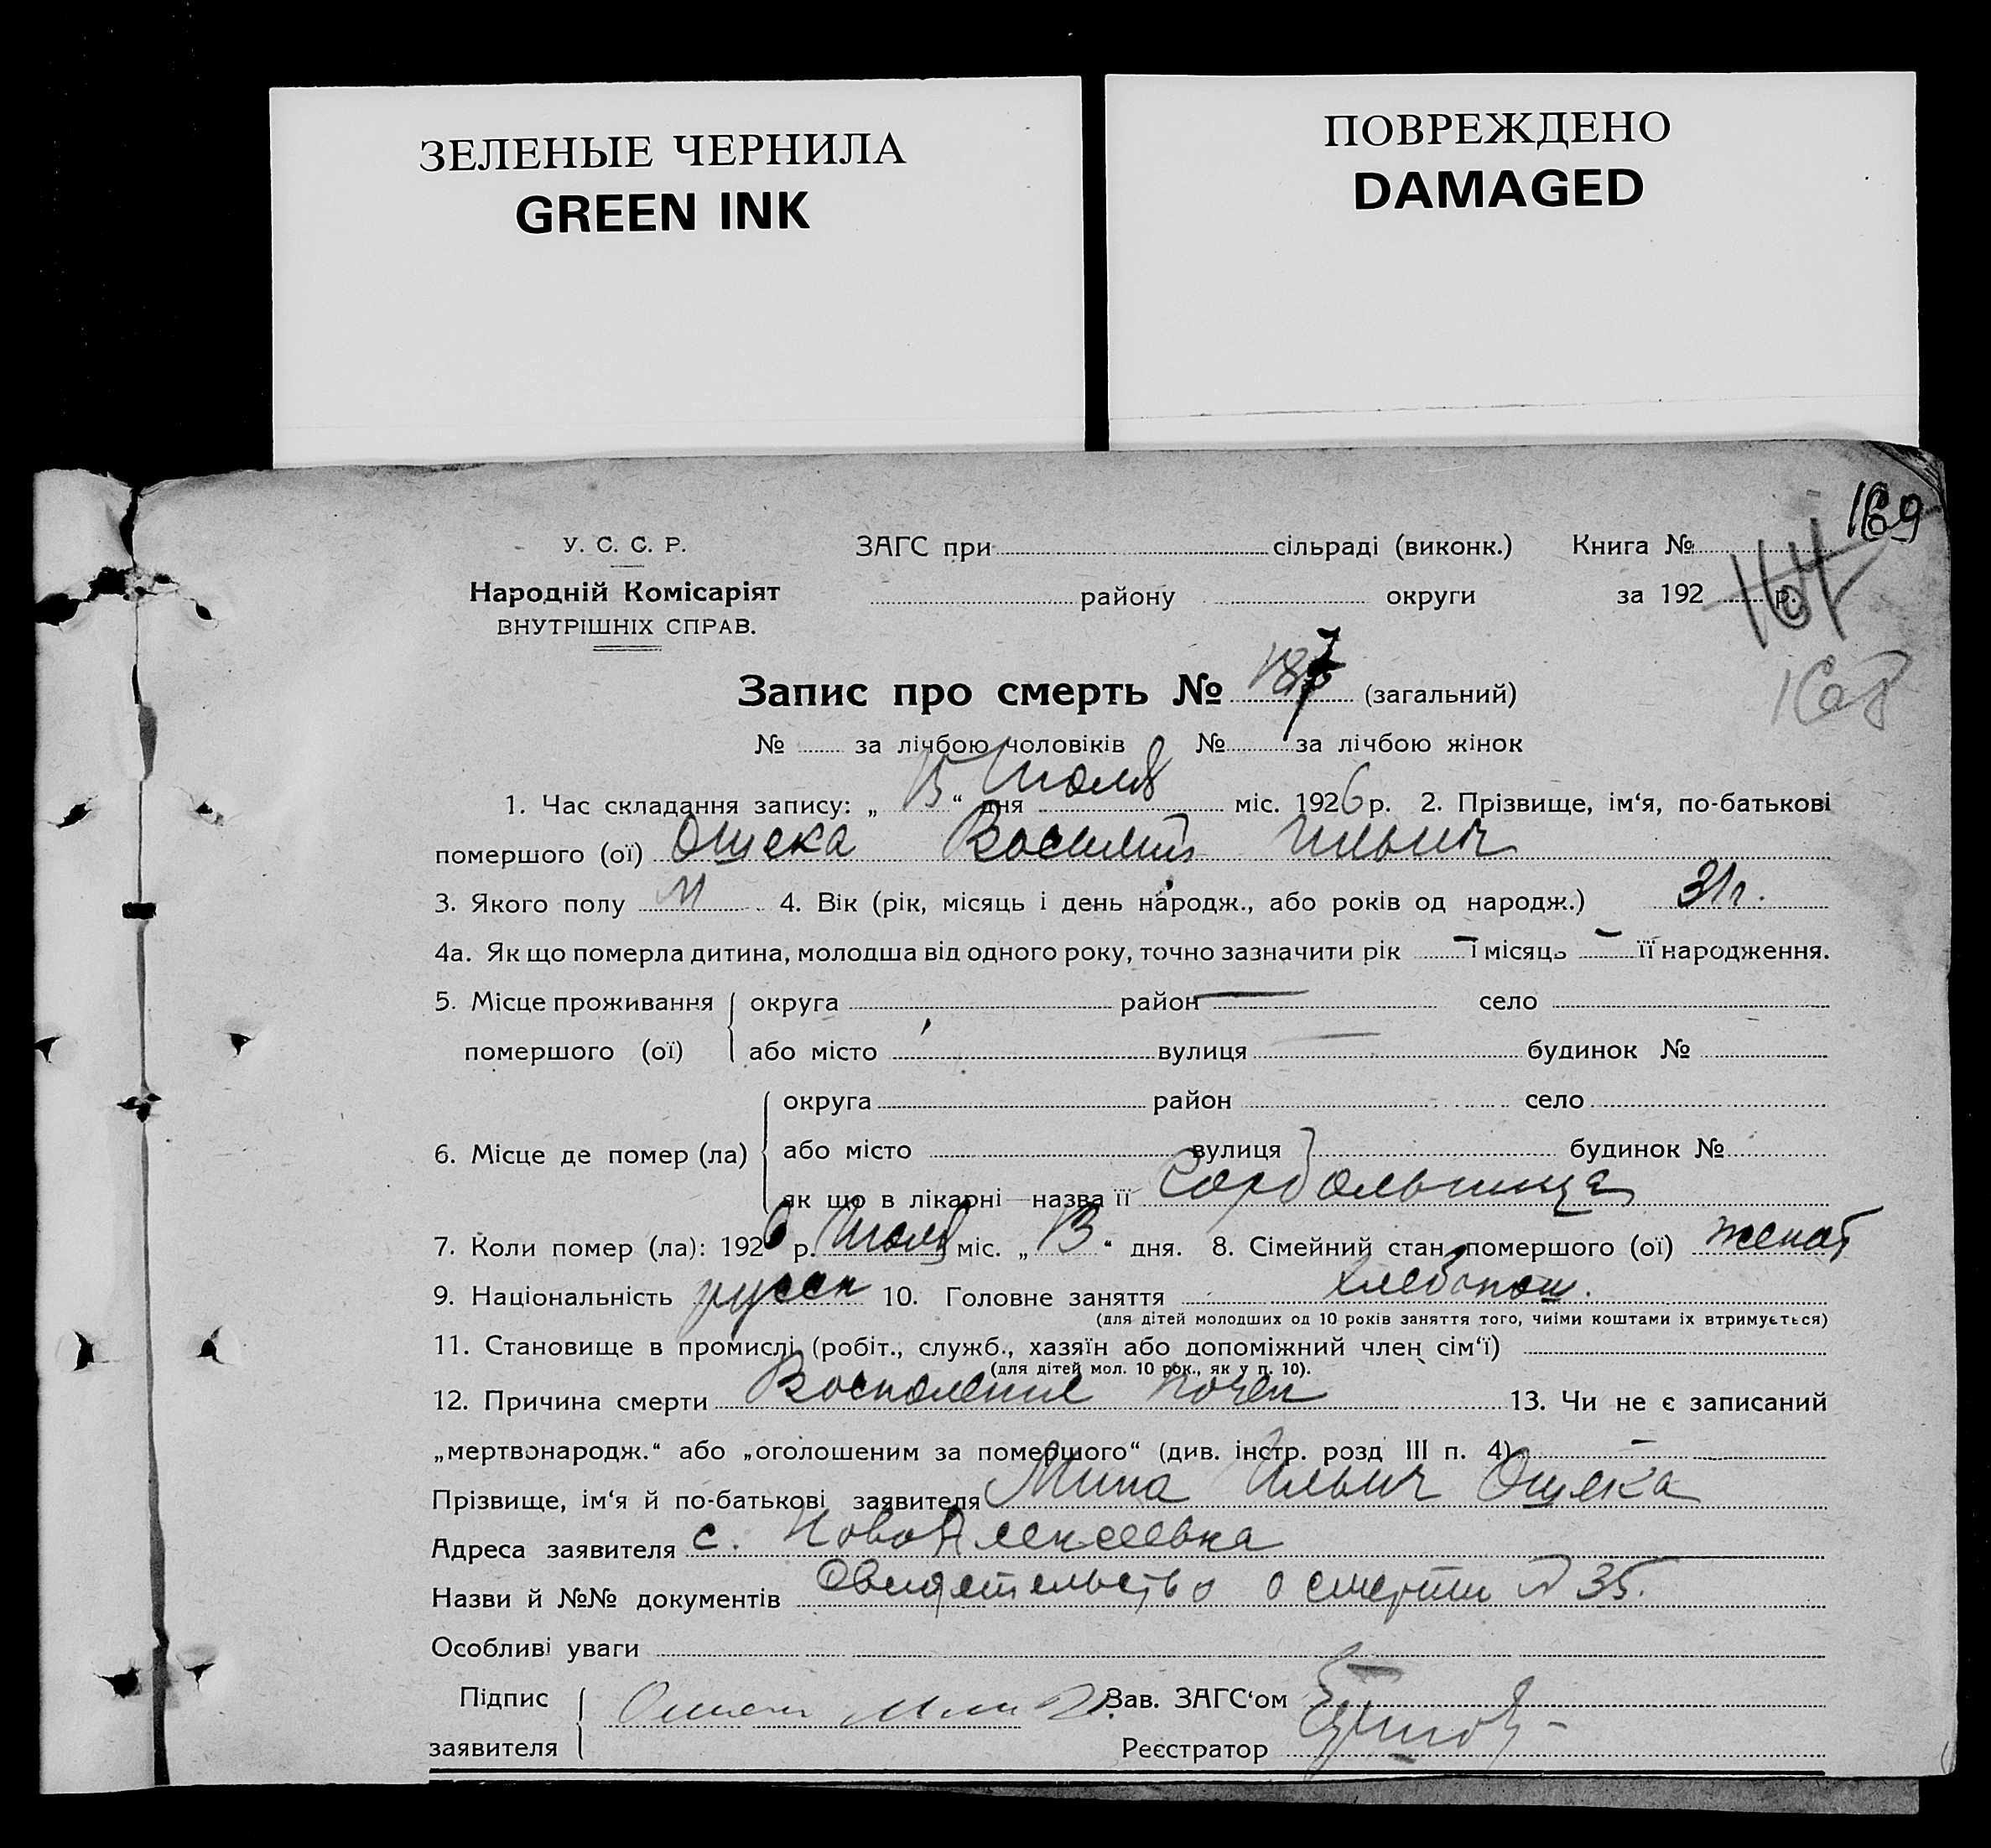 ЗЕЛЕНЫЕ ЧЕРНИЛА
GREEN INK
ПОВРЕЖДЕНО
DAMAGED
169
У. С. С. Р.
Народній Комісаріят
ВНУТРІШНІХ СПРАВ.
ЗАГС при сільраді (виконк.) Книга №
району округи за 192 р.
167
168
Запис про смерть № 187 (загальний)
№ за лічбою чоловіків № за лічбою жінок
1. Час складання запису: „ 15 “ дня Июля міс. 1926 р. 2. Прізвище, ім‘я, по-батькові
помершого (ої) Ошека Василий Ильич
3. Якого полу М 4. Вік (рік, місяць і день народж., або років од народж.) 31 г.
4а. Як що померла дитина, молодша від одного року, точно зазначити рік – і місяць – її народження.
5. Місце проживання помершого (ої) округа район — село
або місто вулиця — будинок №
6. Місце де помер (ла) округа район село
або місто вулиця будинок №
як що в лікарні—назва її Горбольница
7. Коли помер (ла): 1926 р. Июля міс. „ 13 “ дня. 8. Сімейний стан помершого (ої) женат
9. Національність русск 10. Головне заняття хлебопаш.
(для дітей молодших од 10 років заняття того, чиїми коштами їх втримується)
11. Становище в промислі (робіт., служб., хазяїн або допоміжний член сім‘ї)
(для дітей мол. 10 рок., як у п. 10).
12. Причина смерти Воспаление почек 13. Чи не є записаний
„мертвонародж.“ або „оголошеним за помершого“ (див. інстр. розд III п. 4) –
Прізвище, ім‘я й по-батькові заявителя Мина Ильич Ошека
Адреса заявителя с. НовоАлексеевка
Назви й №№ документів Свидетельство о смерти № 35.
Особливі уваги
Підпис заявителя
Зав. ЗАГС‘ом
Реєстратор